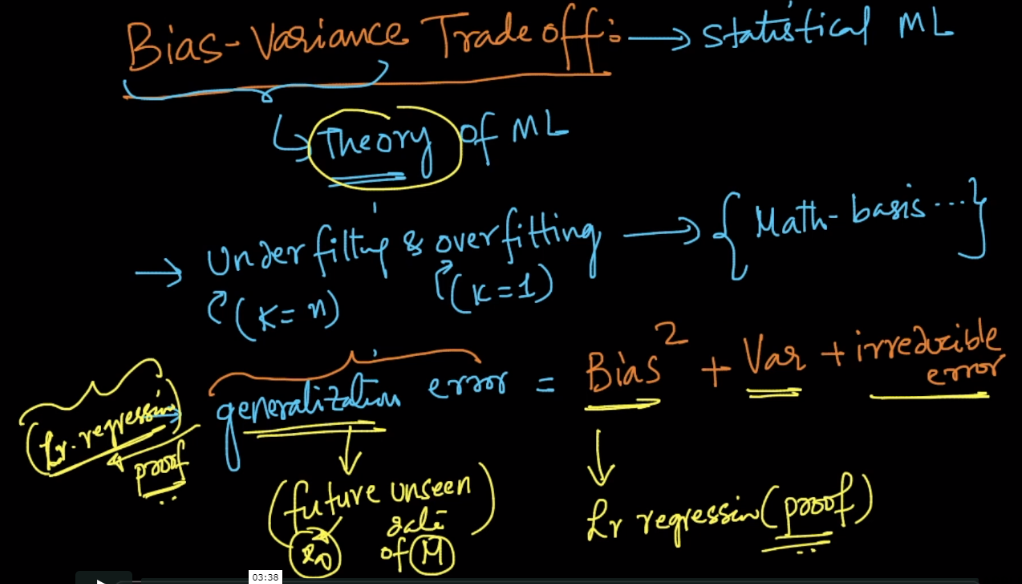 Bias-Variance Trade off: → Statistical ML
↳ Theory of ML
→ Underfitting & overfitting → { Math-basis...}
(K=n) (K=1)
(Lr. regression) generalization error = Bias² + Var + irreducible error
proof
(future unseen data of M)
x₀
Lr regression (proof)
03:38